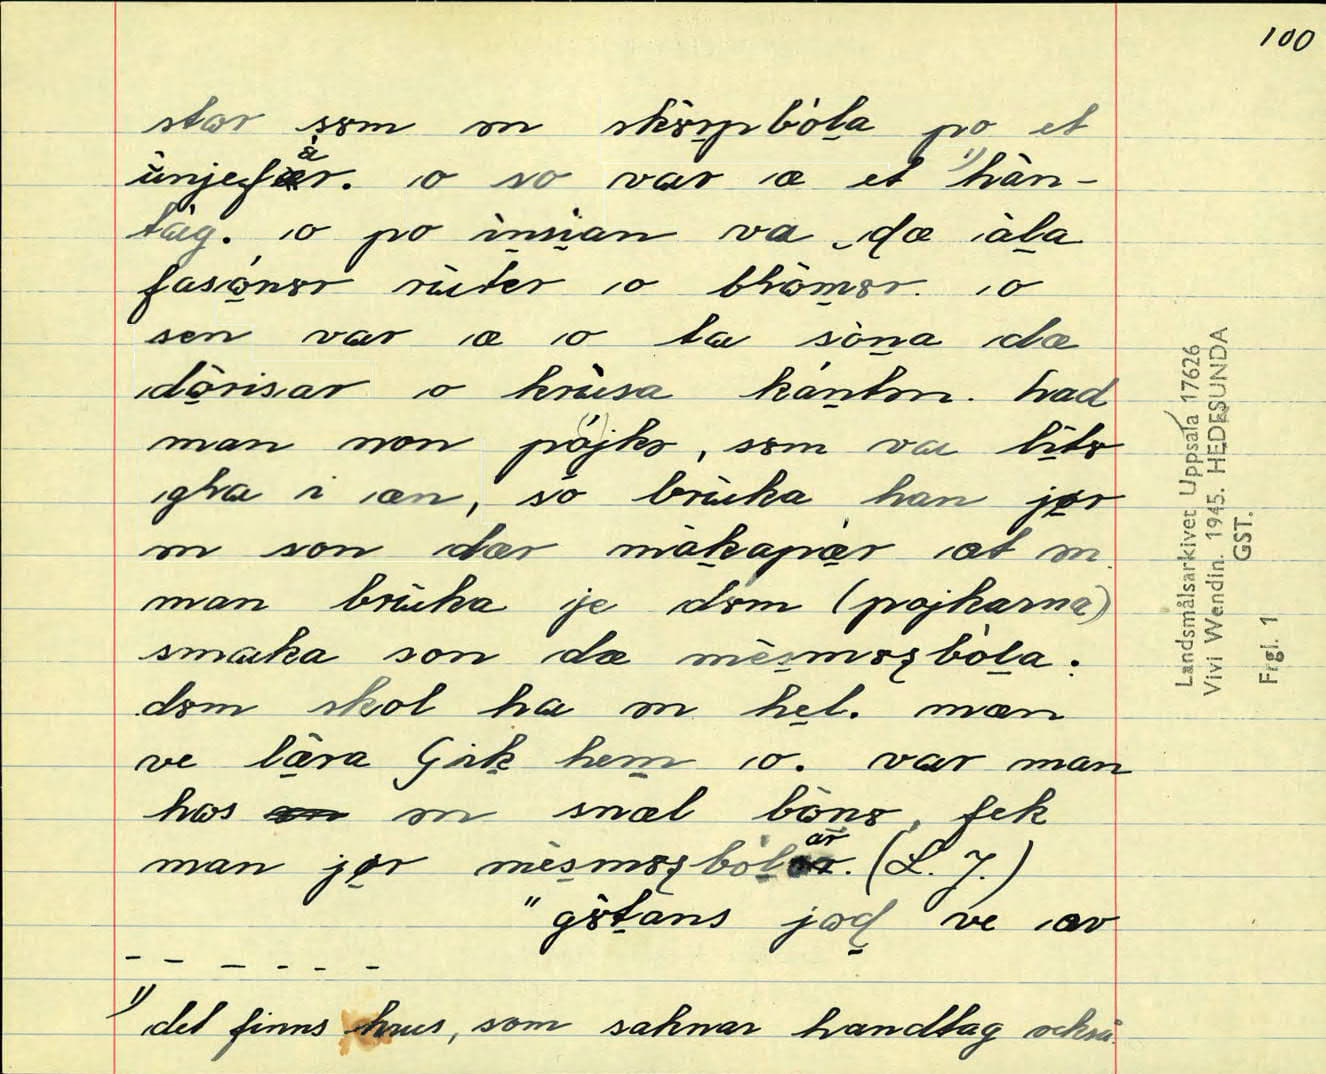 100
star søm en skørpbòla po et
ùnjefær. o so var æ et ¹⁾hàn-
tàg. o po ìnsian va dæ àla
fasónər rùter o blòmər. o
sen var æ o ta sòna dæ
dòrisar o krùsa kántn. had
man non pòjkə, søm va lìtə
gla i æn, so brùka han jør
en son dær màkapær æt en.
man brùka je døm (pojkarna)
smaka son dæ mèsmørsbòla.
døm skol ha en hel. mæn
ve læra gik hem o. var man
hos en snæl bònə, fek
man jør mèsmørsbòlar. (L. J.)
"gø̀tans jod ve av
- - - - - -
1) det finns krus, som saknar handtag också.
Landsmålsarkivet Uppsala 17626
Vivi Wendin. 1945. HEDESUNDA
GST.
Frgl. 1